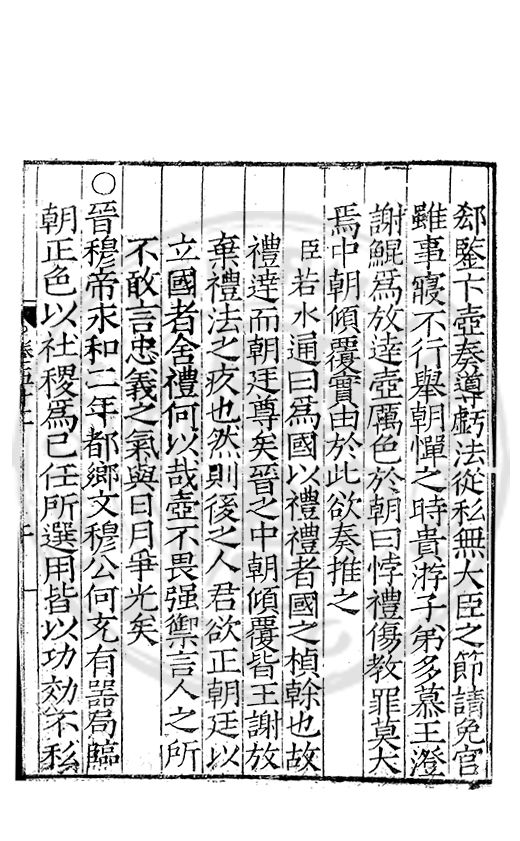 郄鑒卞壺奏導虧法從私無大臣之節請免官
雖事寢不行舉朝憚之時貴游子弟多慕王澄
謝鯤爲放達壺厲色於朝曰悖禮傷教罪莫大
焉中朝傾覆實由於此欲奏推之
臣若水通曰爲國以禮禮者國之楨榦也故
禮達而朝廷尊矣晉之中朝傾覆皆王謝放
棄禮法之疚也然則後之人君欲正朝廷以
立國者舍禮何以哉壺不畏强禦言人之所
不敢言忠義之氣與日月爭光矣
○晉穆帝永和二年都鄉文穆公何充有器局臨
朝正色以社稷爲己任所選用皆以功効不私